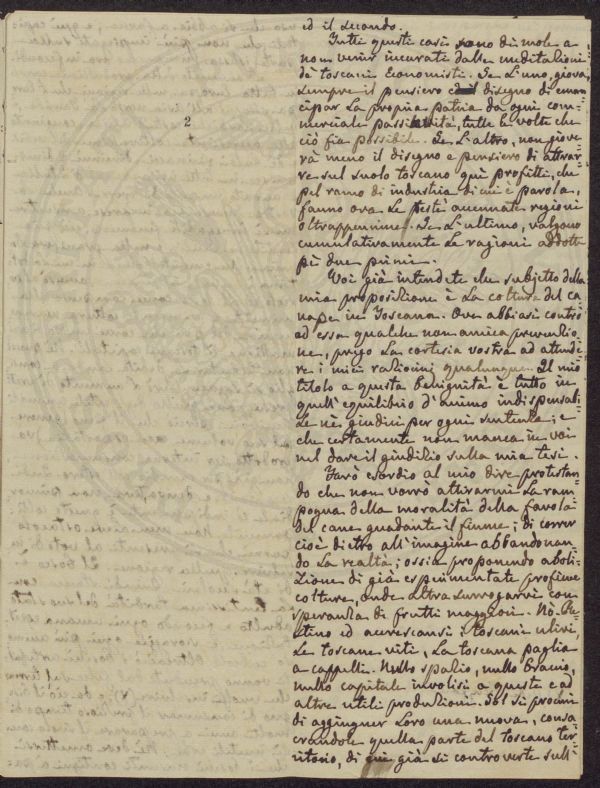 ed il secondo.
Tutti questi casi sono di mole a
non venir incurati dalle meditazioni
de' toscani Economisti. Se l'uno, giova
sempre il pensiero ed il disegno di eman
cipar la propria patria da ogni com=
merciale passività, tutte le volte che
ciò fia possibile. Se l'altro, non giove=
rà meno il disegno e pensiero di attrar=
re sul suolo toscano que' profitti, che
pel ramo di industria di cui è parola,
fanno ora le testè accennate regioni
oltrappennine. Se l'ultimo, valgono
cumulativamente le ragioni addotte
pe' due primi.
2
Voi già intendete che subjetto della
mia proposizione è la coltura del ca=
nape in Toscana. Ove abbiasi contro
ad essa qualche non amica prevenzio
ne, prego la cortesia vostra ad attende
re i miei raziocini qualunque. Il mio
titolo a questa benignità è tutto in
quell'equilibrio d'animo indispensabi=
le ne' giudici per ogni sentenza; e
che certamente non manca in voi
nel dare il giudizio sulla mia tesi.
Farò esordio al mio dire protestan
do che non vorrò attirarmi la ram=
pogna della moralità della favola
del cane guadante il fiume; di correr
cioè dietro all'imagine abbandonan=
do la realtà; ossia proponendo aboli=
zione di già esperimentate proficue
colture, onde altra surrogarvi con
speranza di frutti maggiori. Nò.
ed accrescansi i toscani ulivi,
le toscane viti, la toscana paglia
a cappelli. Nullo spazio, nullo braccio,
nullo capitale involisi a queste e ad
altre utili produzioni. Sol si procuri
di aggiugner loro una nuova, consa
crandole quella parte del toscano ter=
ritorio, di cui già si controverte sull'